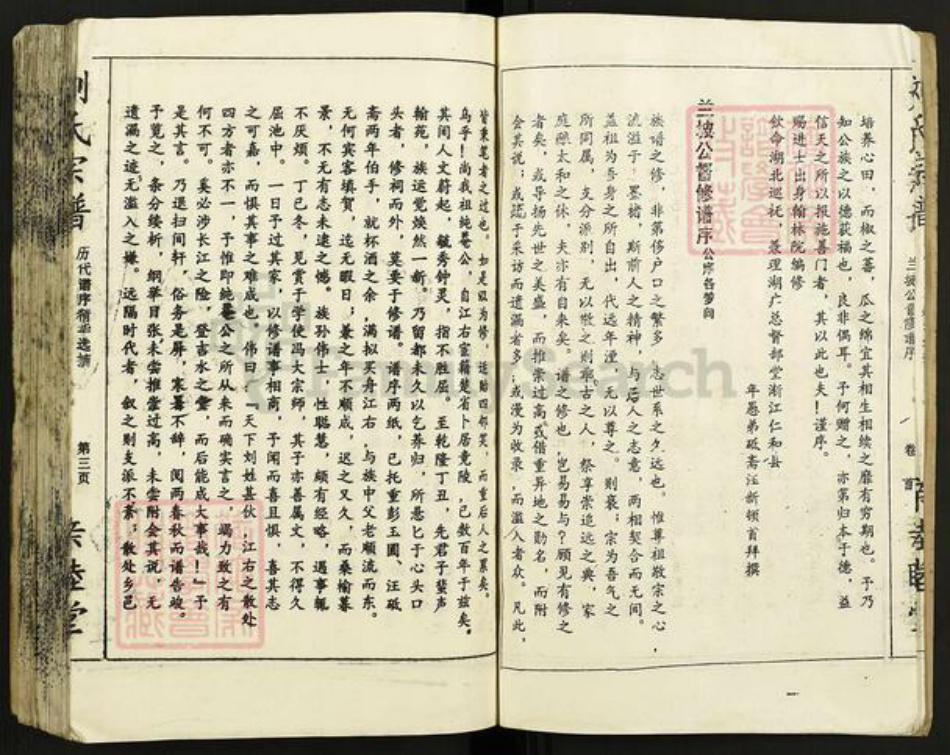 培养心田，而椒之蕃，瓜之绵宜其相生相续之靡有穷期也。予乃
知公族之以德获福也，良非偶耳。予何赠之，亦第归本于德，益
信天之所以报施善门者，其以此也夫！谨序。
赐进士出身翰林院编修
钦命湖北巡抚，兼理湖广总督部堂浙江仁和县
年愚弟砥斋汪新顿首拜撰
兰坡公督修谱序
公序名梦向
族谱之修，非第侈户口之繁多，志世系之久远也。惟尊祖敬宗之心
流溢于楮墨，斯前人之精神，与后人之志意，两相契合而无间。
盖祖为吾身之所自出，代远年湮，无以尊之。则亵；宗为吾气之
所同属，支分派别，无以敬之则乖。古之人，祭享崇追远之典，家
庭溯太和之休，夫亦有自来矣。谱之修也，岂易易与？顾见有修之
者矣，或导扬先世之美盛，而推崇过高或借重异地之勋名，而附
会其说；或疏于采访而遗漏者多；或漫为收录，而滥入者众。凡此，
皆秉笔者之过也。如是以为修，适贻四邻笑，而重后人之累矣。
乌乎！尚我祖纯菴公，自江右宦籍楚省卜居竟陵，已数百年于兹矣。
其间人文蔚起，毓秀钟灵，指不胜屈。至乾隆丁丑，先君子蜚声
翰苑，族运觉焕然一新。乃留都未久以乞养归，所悬匕于心头口
头者，修祠而外，莫要于修谱。谱序两纸，已托重彭玉圃、汪砥
斋两年伯手，就杯酒之余，满拟买舟江右，与族中父老顺流而东。
无何宾客填贺，迄无暇日；兼之年不顺成，迟之又久，而桑榆暮
景，不无有志未逮之憾。族孙伟士，性聪慧，颇有经略，遇事辄
不厌烦。丁巳冬，见赏于学使冯大宗师，其子亦善属文，不得久
屈池中。一日予过其家，以修谱事相商，予闻而喜且惧，喜其志
之可嘉，而惧其事之难成也；伟曰：“天下刘姓甚伙，江右之散处
四方者亦不一，予惟即纯菴公之所从来而确实言之，竭力致之有
何不可。奚必涉长江之险，登吉水之堂，而后能成大事哉！”于
是其言。乃退扫闲轩，俗务是屏，寒暑不辞，阅两春秋而谱告竣。
予览之，条分缕析，纲举目张，未尝推崇过高，未尝附会其说，无
遗漏之迹无滥入之嫌。远隔时代者，叙之则支派不紊；散处乡邑
刘氏宗谱
历代谱序精华选摘
第三页
亲睦堂
兰坡公督修谱序
卷首